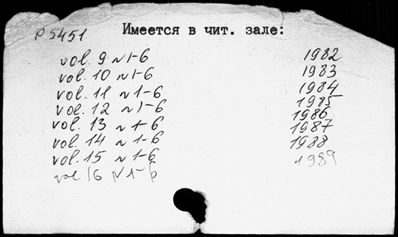 Р5451
Имеется в чит. зале:
vol. 9 N 1-6 1982
vol. 10 N 1-6 1983
vol. 11 N 1-6 1984
vol. 12 N 1-6 1985
vol. 13 N 1-6 1986
vol. 14 N 1-6 1987
vol. 15 N 1-6 1988
vol 16 N 1-6 1989